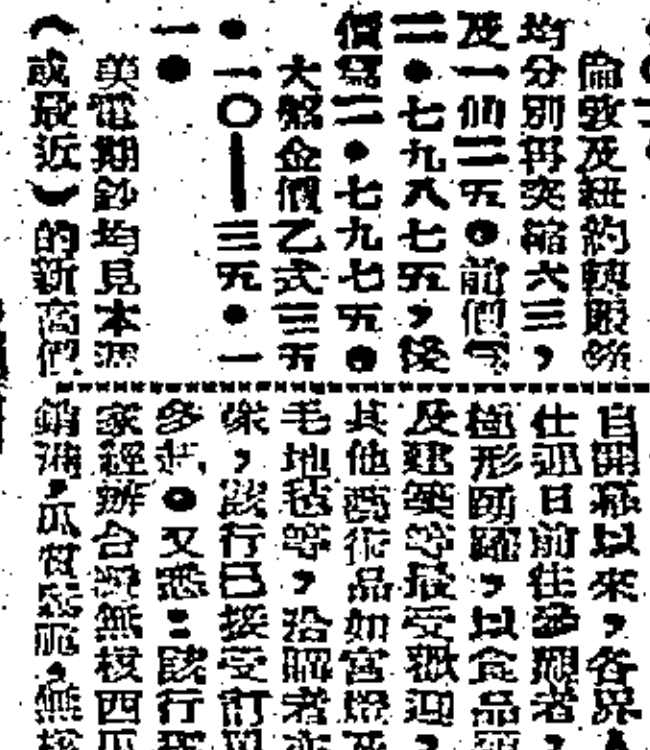 倫敦及紐約
均分別再突縮六三，
及一仙二五。前價
二•七九八七五，後
價為二•七九七五。
大盤金價乙式三五
•一〇—三五•一
一•
美電期鈔均見本
（或最近）的新高價
自開幕以來，各界
仕連日前往參觀者，
極形踴躍，以食品
及建築等最受歡迎，
其他藝術品如宮燈及
毛地毡等，洽購者亦
，該行已接受訂
多。又悉：該行
家經辦合無核西瓜
，無核